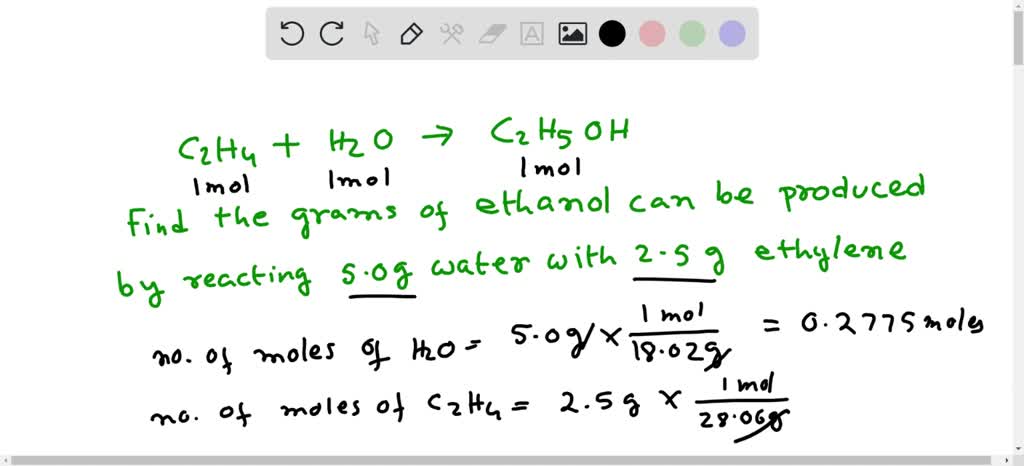 C2H4 + H2O → C2H5OH
1mol 1mol 1mol
Find the grams of ethanol can be produced
by reacting 5.0g water with 2.5 g ethylene
no. of moles of H2O = 5.0g × 1 mol / 18.02g = 0.2775 moles
no. of moles of C2H4 = 2.5 g × 1 mol / 28.06g